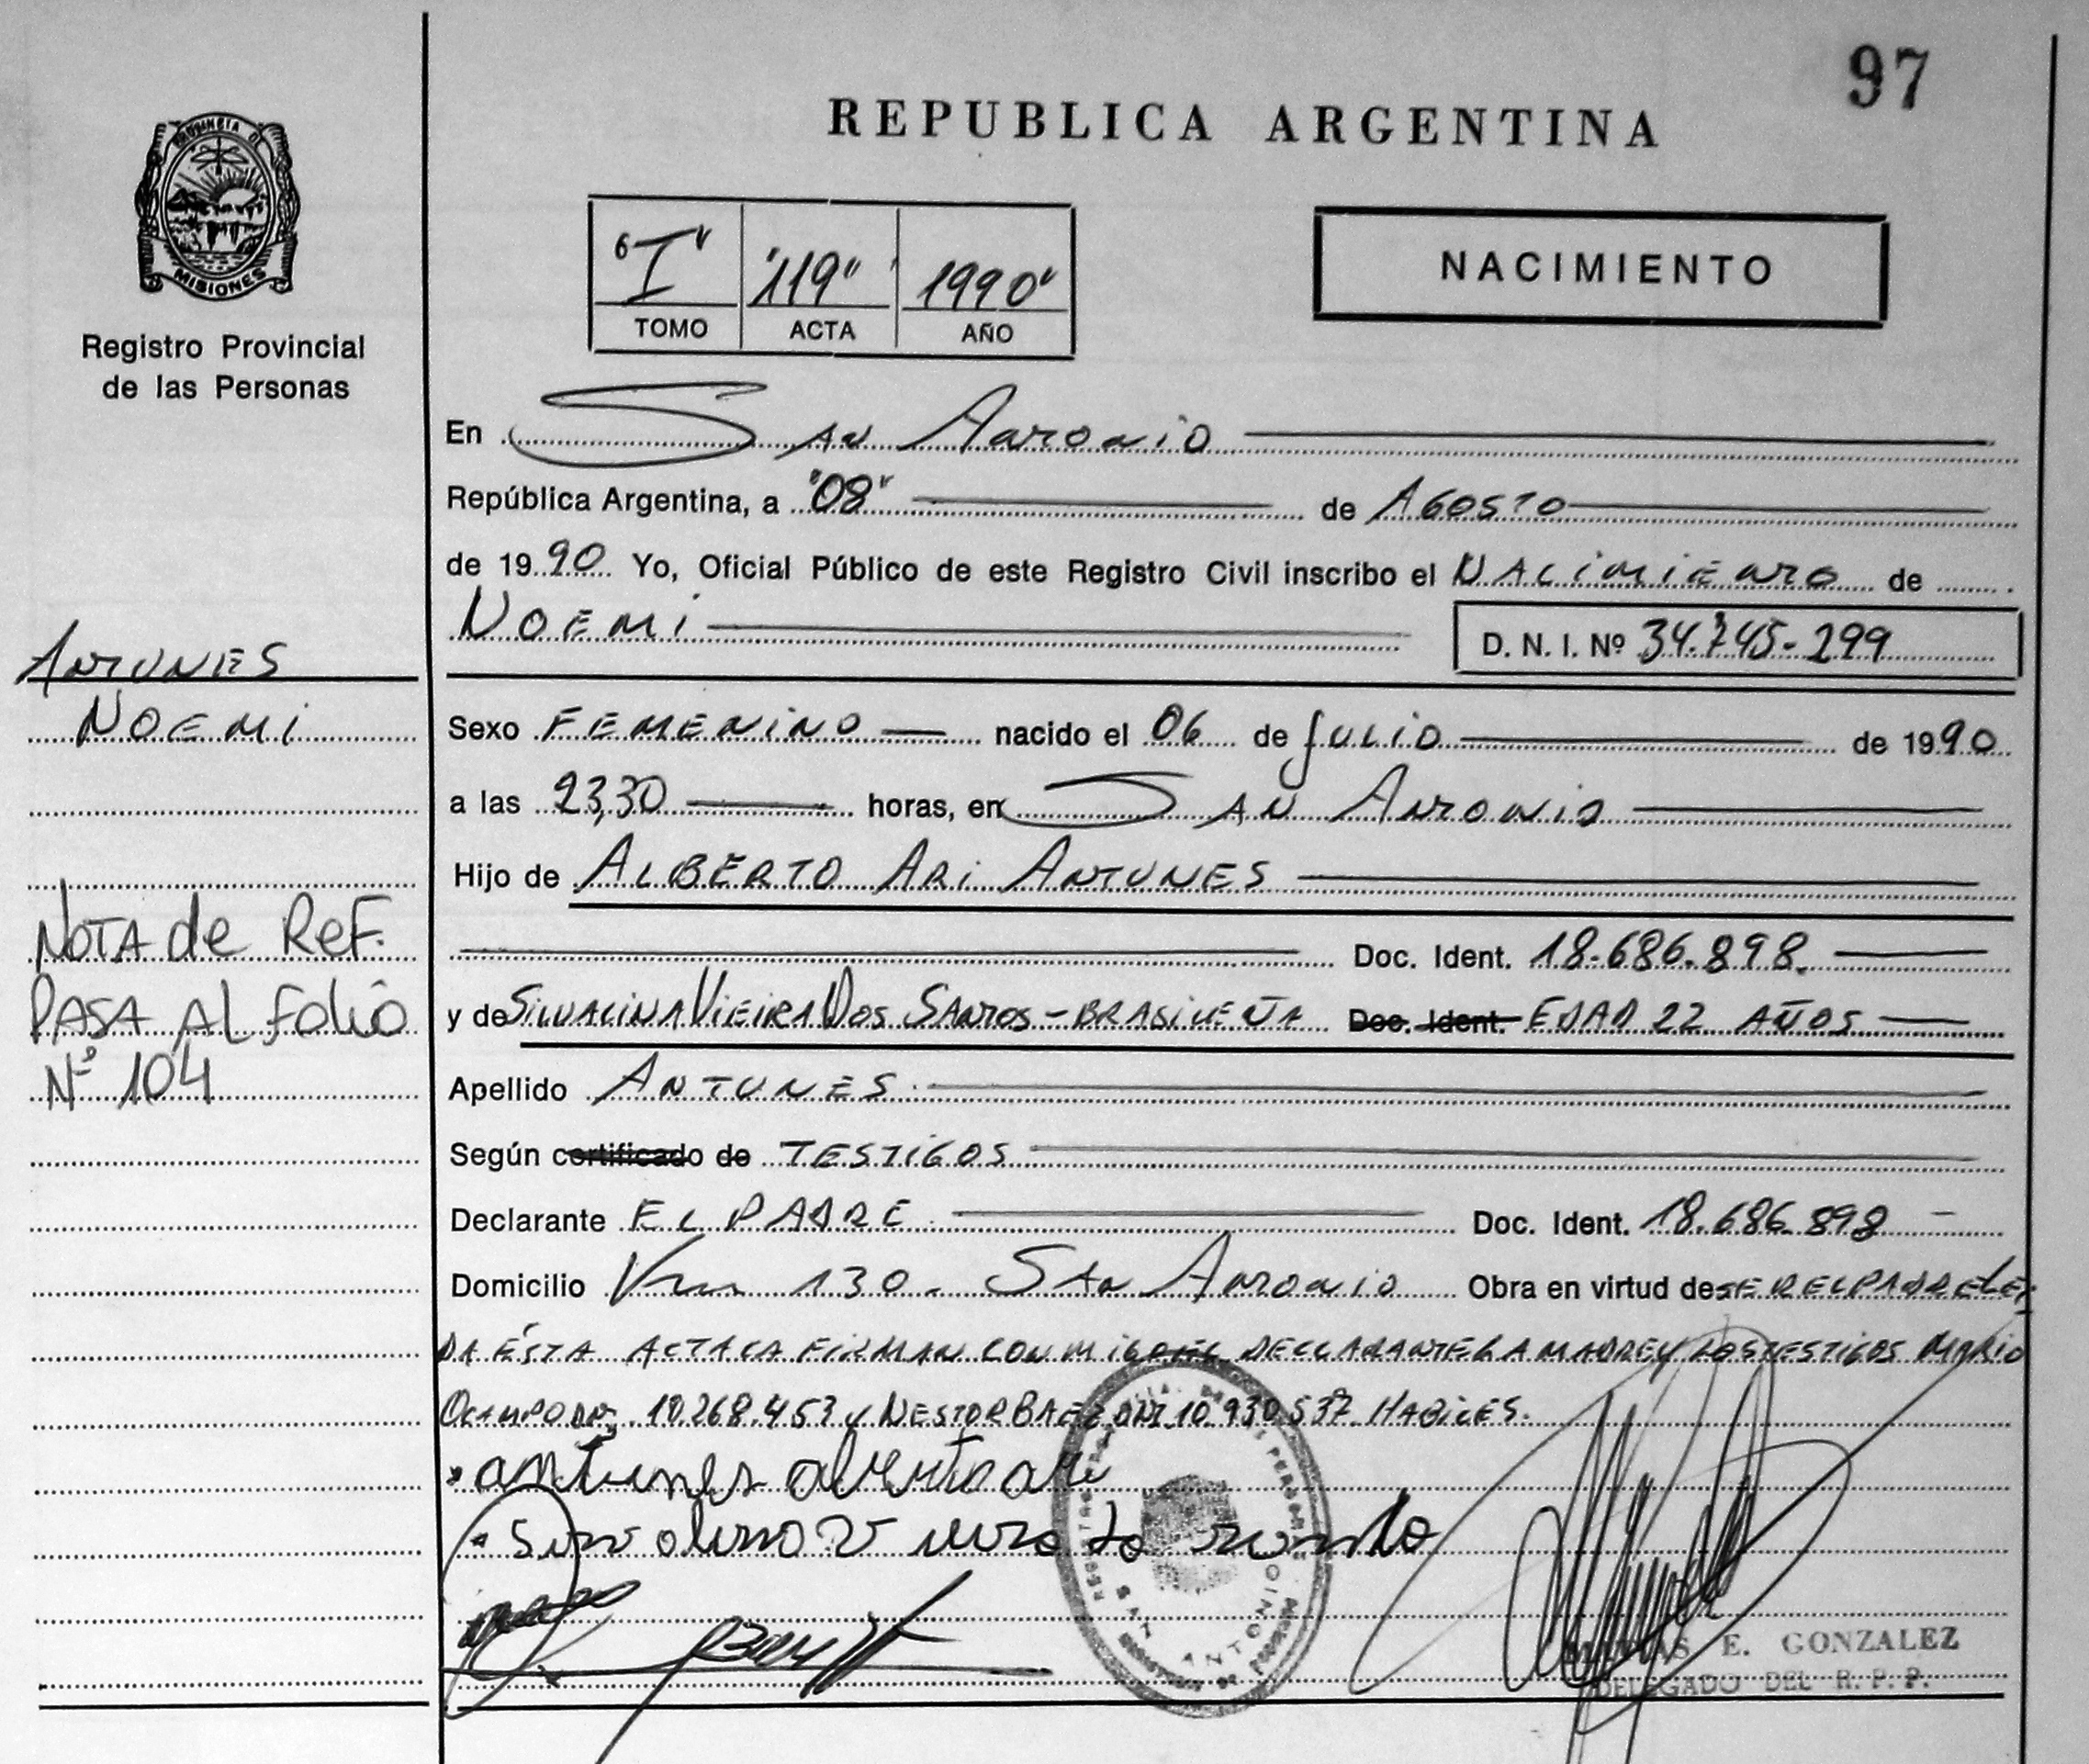 97
REPUBLICA ARGENTINA
PROVINCIA DE
MISIONES
Registro Provincial
de las Personas
"I" "119" 1990"
TOMO ACTA AÑO
NACIMIENTO
En San Antonio
República Argentina, a "08" de Agosto
de 1990 Yo, Oficial Público de este Registro Civil inscribo el NACIMIENTO de
NOEMI
D. N. I. Nº 34.745-299
ANTUNES
NOEMI
Sexo FEMENINO nacido el 06 de JULIO de 1990
a las 23,30 horas, en SAN ANTONIO
Hijo de ALBERTO ARI ANTUNES
Doc. Ident. 18.686.898.
NOTA de REF.
PASA AL FOLIO
Nº 104
y de SILVALINA VIEIRA DOS SANTOS - BRASILEÑA Doc. Ident. EDAD 22 AÑOS
Apellido ANTUNES
Según certificado de TESTIGOS
Declarante EL PADRE Doc. Ident. 18.686.898
Domicilio Km 130 - San Antonio Obra en virtud de SER EL PADRE LEI
DA ÉSTA ACTA LA FIRMAN CONMIGO EL DECLARANTE LA MADRE Y LOS TESTIGOS MARIO
OCAMPO DNI. 10.268.453 y NESTOR BAEZ DNI 10.930.537 HABILES.
antunes alberto ari
SAN ANTONIO
E. GONZALEZ
DELEGADO DEL R. P. P.